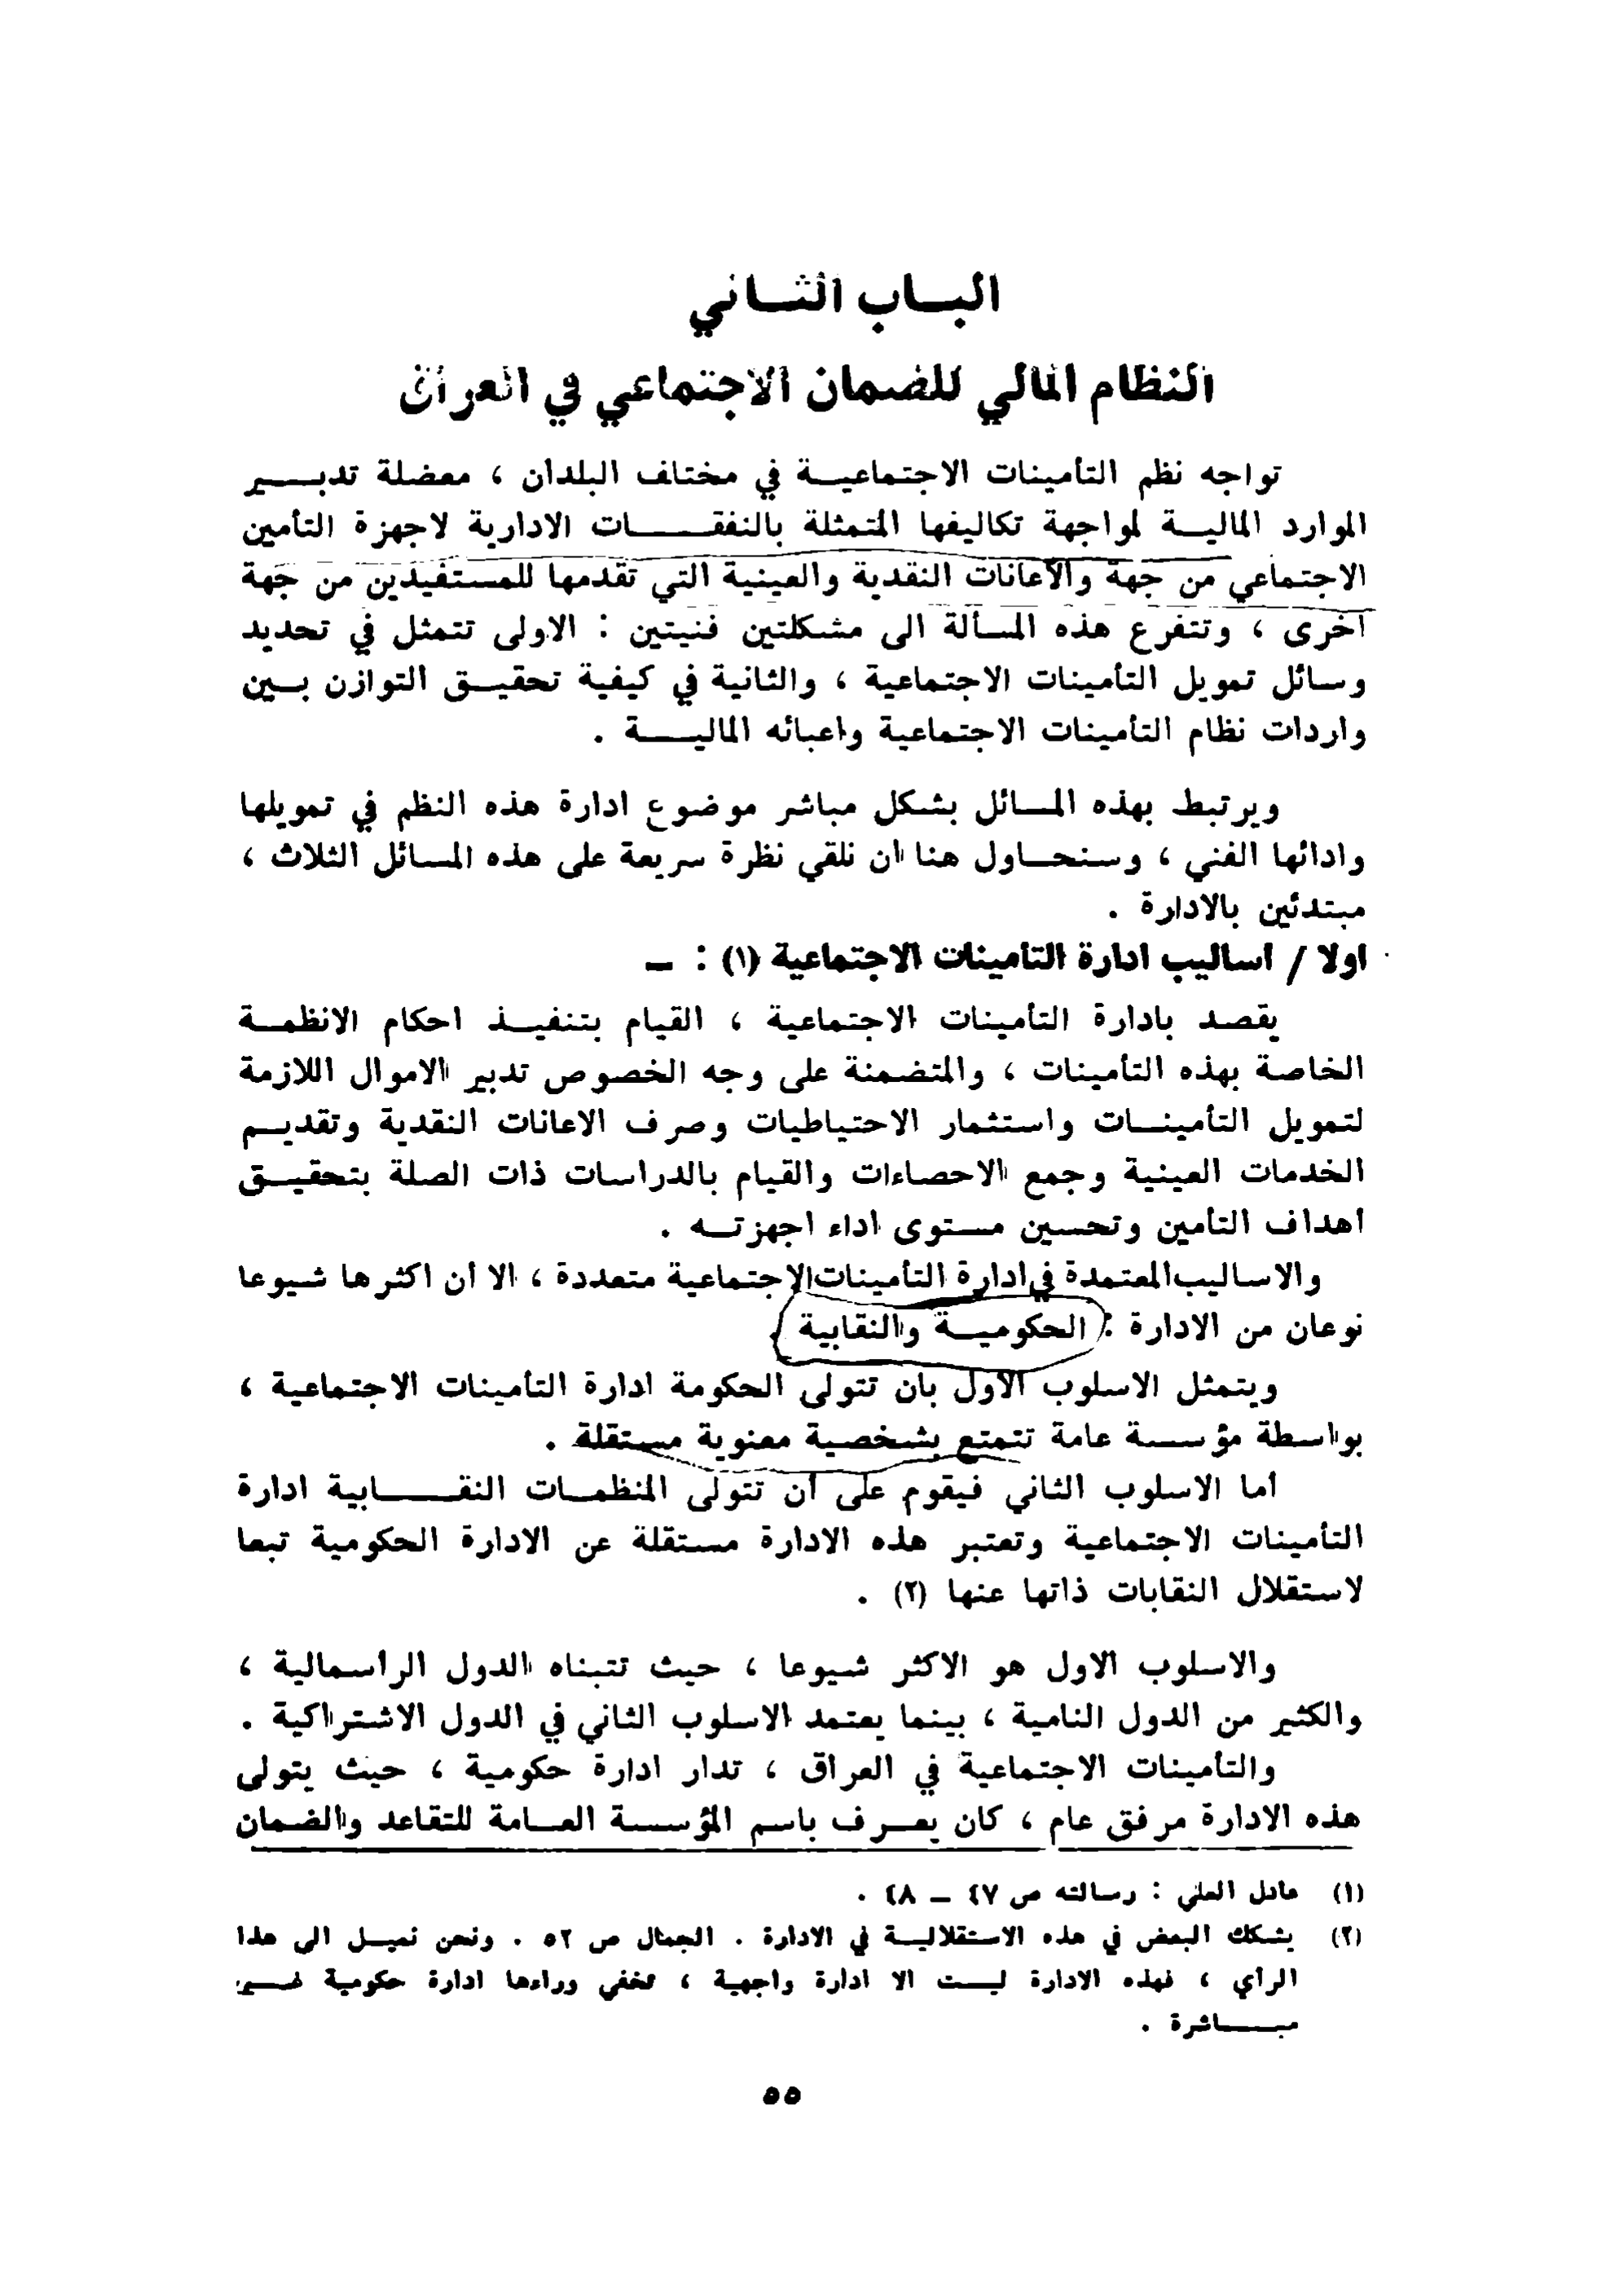 الباب الثاني
النظام المالي للضمان الاجتماعي في العراق
تواجه نظم التأمينات الاجتماعية في مختلف البلدان ، معضلة تدبير
الموارد المالية لمواجهة تكاليفها المتمثلة بالنفقات الادارية لاجهزة التأمين
الاجتماعي من جهة والاعانات النقدية والعينية التي تقدمها للمستفيدين من جهة
اخرى ، وتتفرع هذه المسألة الى مشكلتين فنيتين : الاولى تتمثل في تحديد
وسائل تمويل التأمينات الاجتماعية ، والثانية في كيفية تحقيق التوازن بين
واردات نظام التأمينات الاجتماعية واعبائه المالية .
ويرتبط بهذه المسائل بشكل مباشر موضوع ادارة هذه النظم في تمويلها
وادائها الفني ، وسنحاول هنا ان نلقي نظرة سريعة على هذه المسائل الثلاث ،
مبتدئين بالادارة .
اولا / اساليب ادارة التأمينات الاجتماعية (١) : ـ
يقصد بادارة التأمينات الاجتماعية ، القيام بتنفيذ احكام الانظمة
الخاصة بهذه التأمينات ، والمتضمنة على وجه الخصوص تدبير الاموال اللازمة
لتمويل التأمينات واستثمار الاحتياطيات وصرف الاعانات النقدية وتقديم
الخدمات العينية وجمع الاحصاءات والقيام بالدراسات ذات الصلة بتحقيق
اهداف التأمين وتحسين مستوى اداء اجهزته .
والاساليب المعتمدة في ادارة التأمينات الاجتماعية متعددة ، الا أن اكثرها شيوعا
نوعان من الادارة : الحكومية والنقابية .
ويتمثل الاسلوب الاول بان تتولى الحكومة ادارة التأمينات الاجتماعية ،
بواسطة مؤسسة عامة تتمتع بشخصية معنوية مستقلة .
أما الاسلوب الثاني فيقوم على أن تتولى المنظمات النقابية ادارة
التأمينات الاجتماعية وتعتبر هذه الادارة مستقلة عن الادارة الحكومية تبعا
لاستقلال النقابات ذاتها عنها (٢) .
والاسلوب الاول هو الاكثر شيوعا ، حيث تتبناه الدول الرأسمالية ،
والكثير من الدول النامية ، بينما يعتمد الاسلوب الثاني في الدول الاشتراكية .
والتأمينات الاجتماعية في العراق ، تدار ادارة حكومية ، حيث يتولى
هذه الادارة مرفق عام ، كان يعرف باسم المؤسسة العامة للتقاعد والضمان
(١) عادل العلي : رسالته ص ٤٧ ـ ٤٨ .
(٢) يشكك البعض في هذه الاستقلالية في الادارة . الجمال ص ٥٢ . ونحن نميل الى هذا
الرأي ، فهذه الادارة ليست الا ادارة واجهية ، تخفي وراءها ادارة حكومية غير
مباشرة .
٥٥